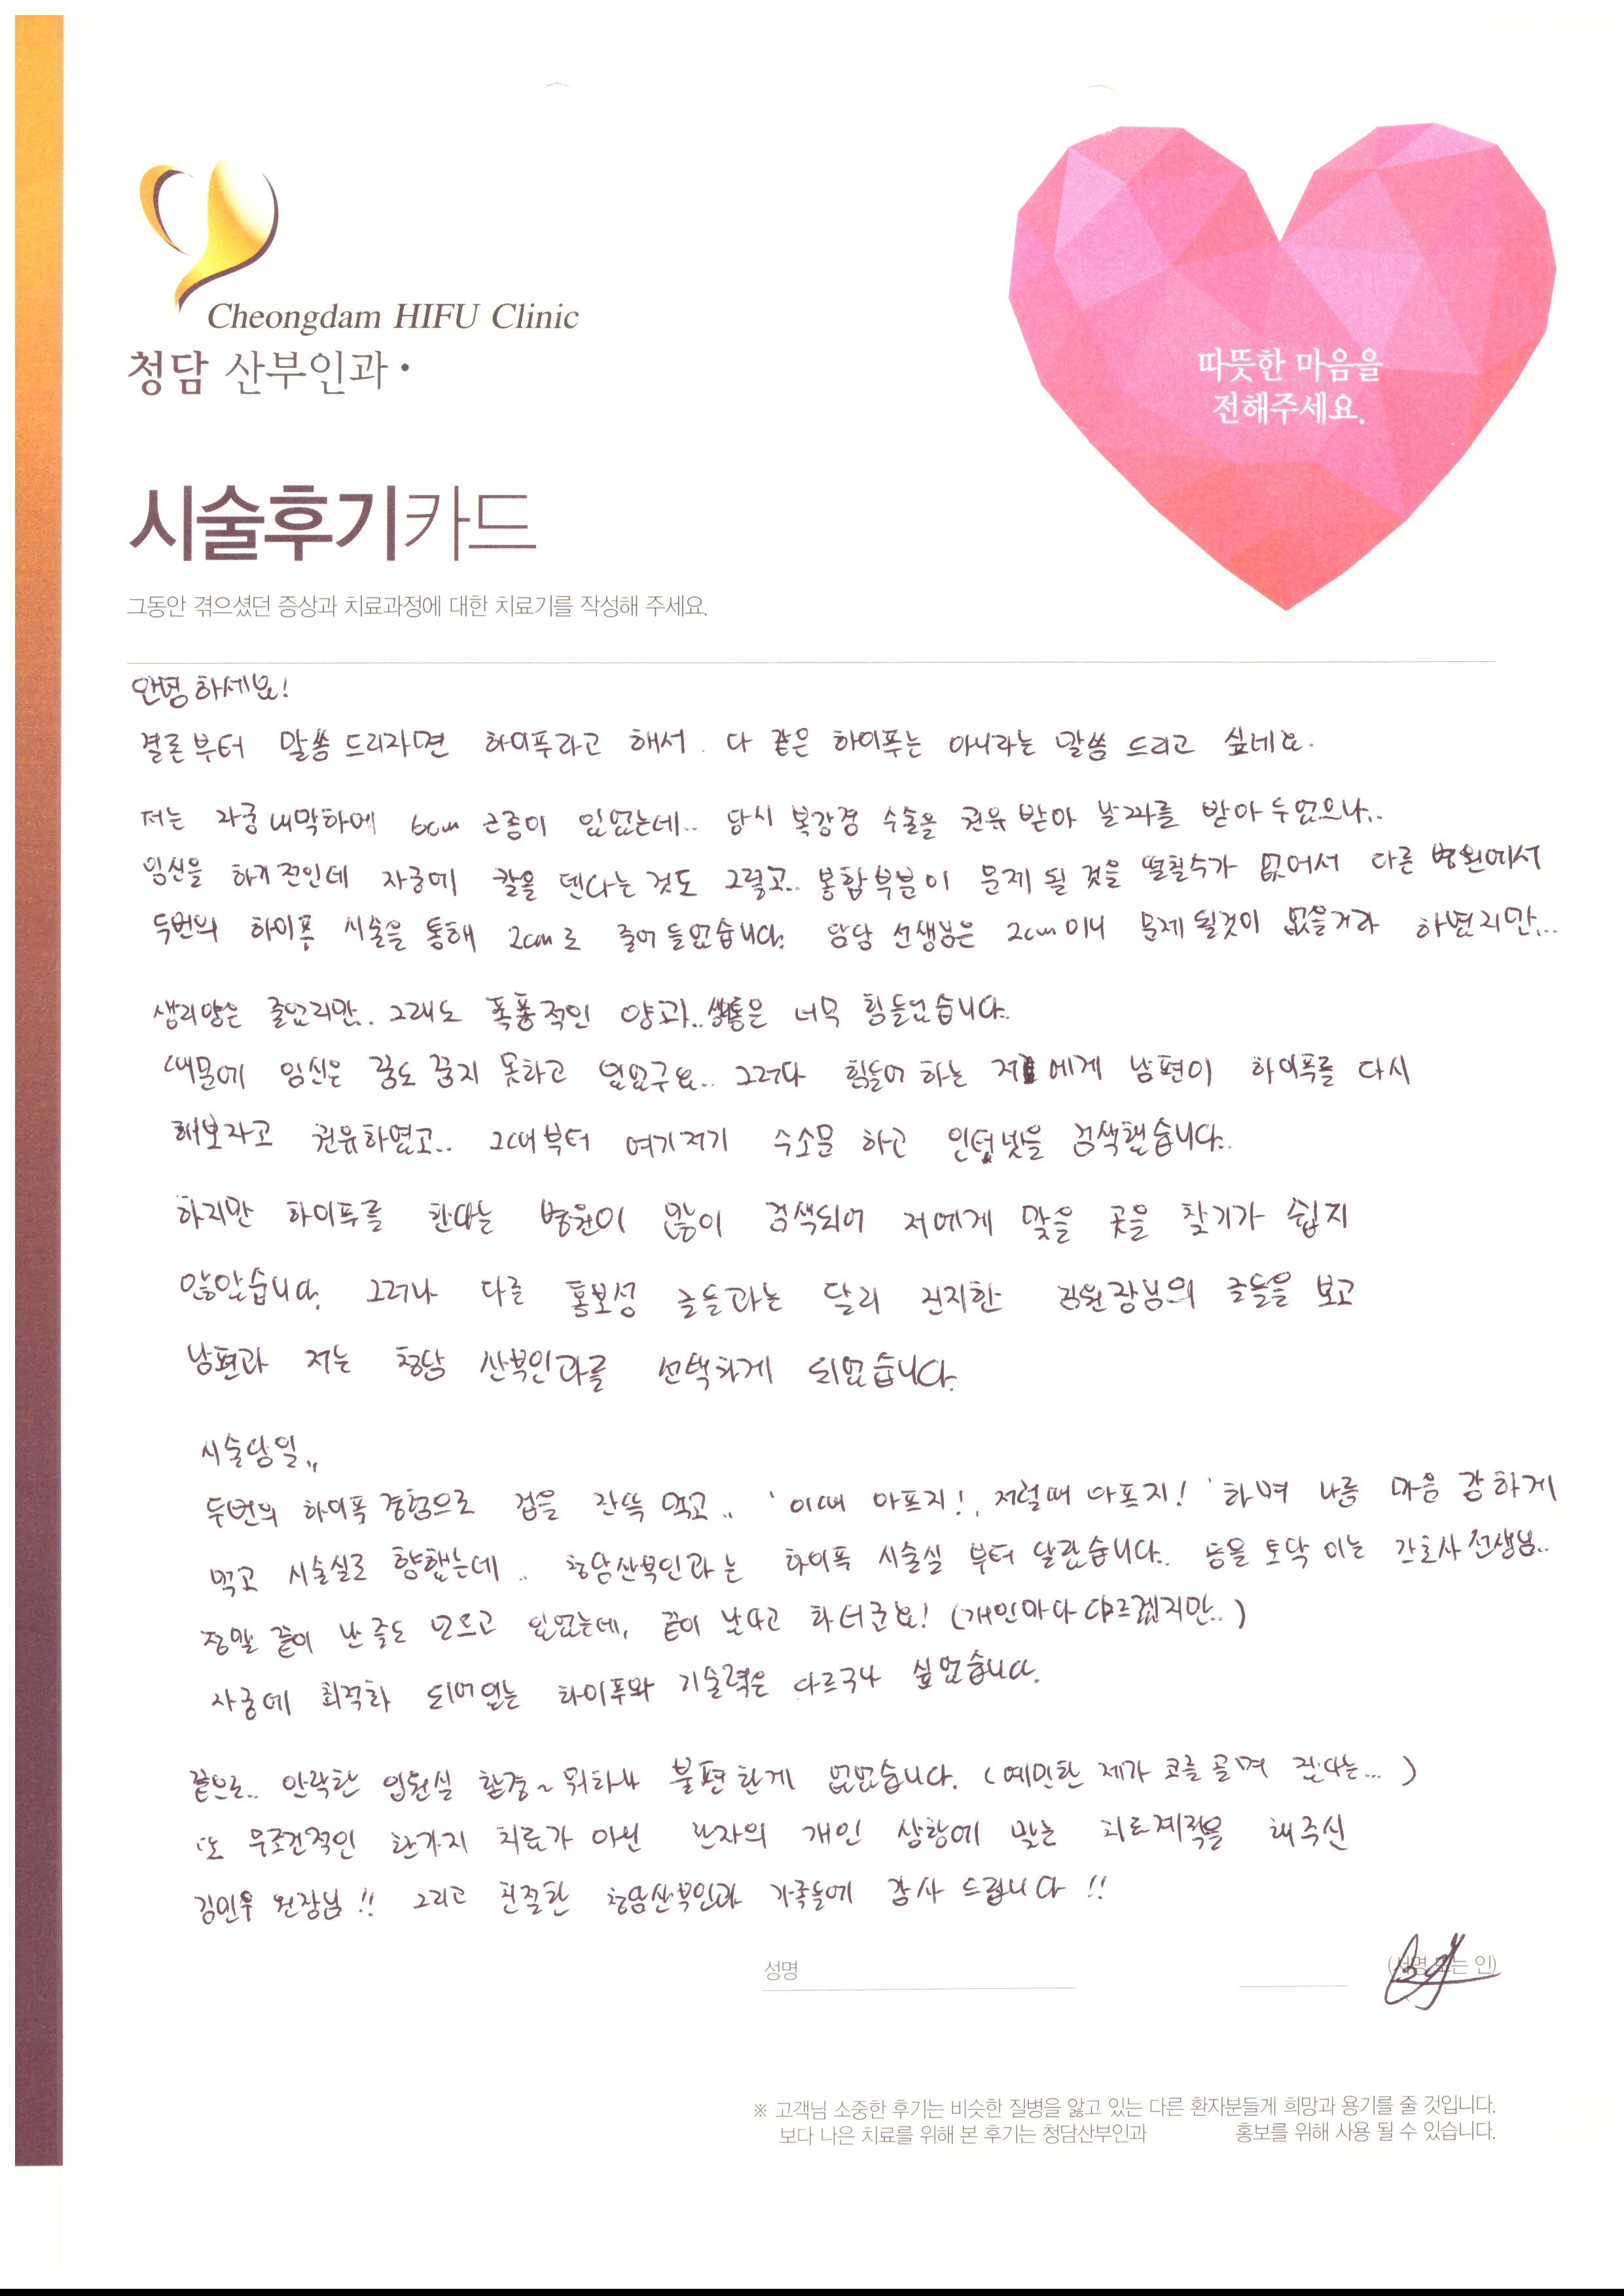 Cheongdam HIFU Clinic
청담 산부인과
따뜻한 마음을
전해주세요.
시술후기카드
그동안 겪으셨던 증상과 치료과정에 대한 치료기를 작성해 주세요.
안녕하세요!
결론부터 말씀 드리자면 하이푸라고 해서. 다 같은 하이푸는 아니라는 말씀 드리고 싶네요.
저는 자궁내막하에 6cm 근종이 있었는데.. 당시 복강경 수술을 권유 받아 날짜를 받아 두었으나..
임신을 하기 전인데 자궁에 칼을 덴다는 것도 그렇고.. 봉합부분이 문제 될 것을 떨칠수가 없어서 다른 병원에서
두번의 하이푸 시술을 통해 2cm로 줄어 들었습니다. 담당 선생님은 2cm이니 문제 될것이 없을거라 하셨지만...
생리양은 줄었지만.. 그래도 폭풍적인 양과.. 생리통은 너무 힘들었습니다.
때문에 임신은 꿈도 꾸지 못하고 있었구요.. 그러다 힘들어 하는 저에게 남편이 하이푸를 다시
해보자고 권유하였고.. 그때부터 여기저기 수소문 하고 인터넷을 검색했습니다..
하지만 하이푸를 한다는 병원이 많이 검색되어 저에게 맞을 곳을 찾기가 쉽지
않았습니다. 그러나 다른 홍보성 글들과는 달리 진지한 김원장님의 글들을 보고
남편과 저는 청담 산부인과를 선택하게 되었습니다.
시술당일,,
두번의 하이푸 경험으로 겁을 잔뜩 먹고.. '이때 아프지!, 저럴때 아프지!' 하며 나름 마음 강하게
먹고 시술실로 향했는데.. 청담산부인과는 하이푸 시술실 부터 달랐습니다. 등을 토닥이는 간호사 선생님..
정말 끝이 난 줄도 모르고 있었는데, 끝이 났다고 하더군요! (개인마다 다르겠지만..)
자궁에 최적화 되어있는 하이푸와 기술력은 다르구나 싶었습니다.
끝으로.. 안락한 입원실 환경~ 뭐하나 불편한게 없었습니다. (예민한 제가 코를 골며 잤다는...)
또 무조건적인 한가지 치료가 아닌 환자의 개인 상황에 맞는 치료계획을 해주신
김민우 원장님!! 그리고 친절한 청담산부인과 가족들에 감사 드립니다!!
성명 (서명 또는 인)
※ 고객님 소중한 후기는 비슷한 질병을 앓고 있는 다른 환자분들게 희망과 용기를 줄 것입니다.
보다 나은 치료를 위해 본 후기는 청담산부인과 홍보를 위해 사용 될 수 있습니다.